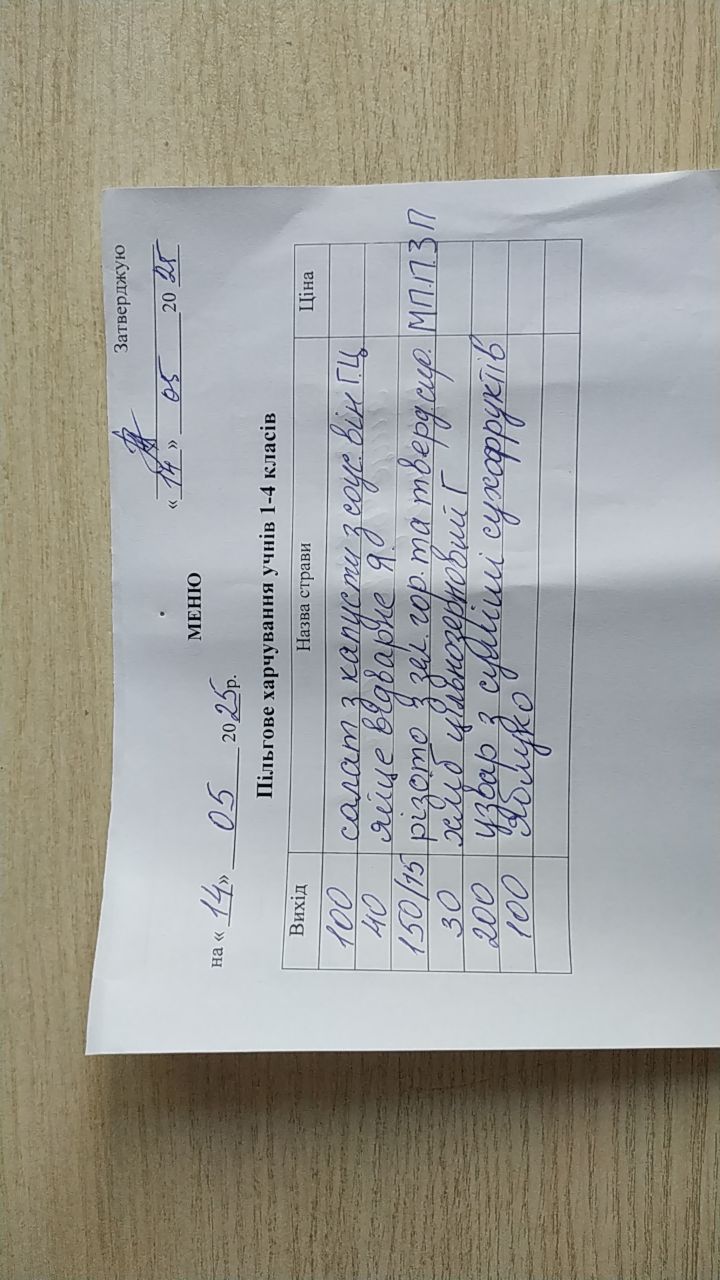 Затверджую
« 14 » 05 20 25
МЕНЮ
на « 14 » 05 20 25 р.
Пільгове харчування учнів 1-4 класів
Вихід Назва страви Ціна
100 салат з капусти з соус. він Г.Ц
40 яйце відварне Я.
150/15 різото з зел. гор. та тверд сир. МП.П.З П
30 хліб цільнозерновий Г
200 узвар з суміші сухофруктів
100 яблуко